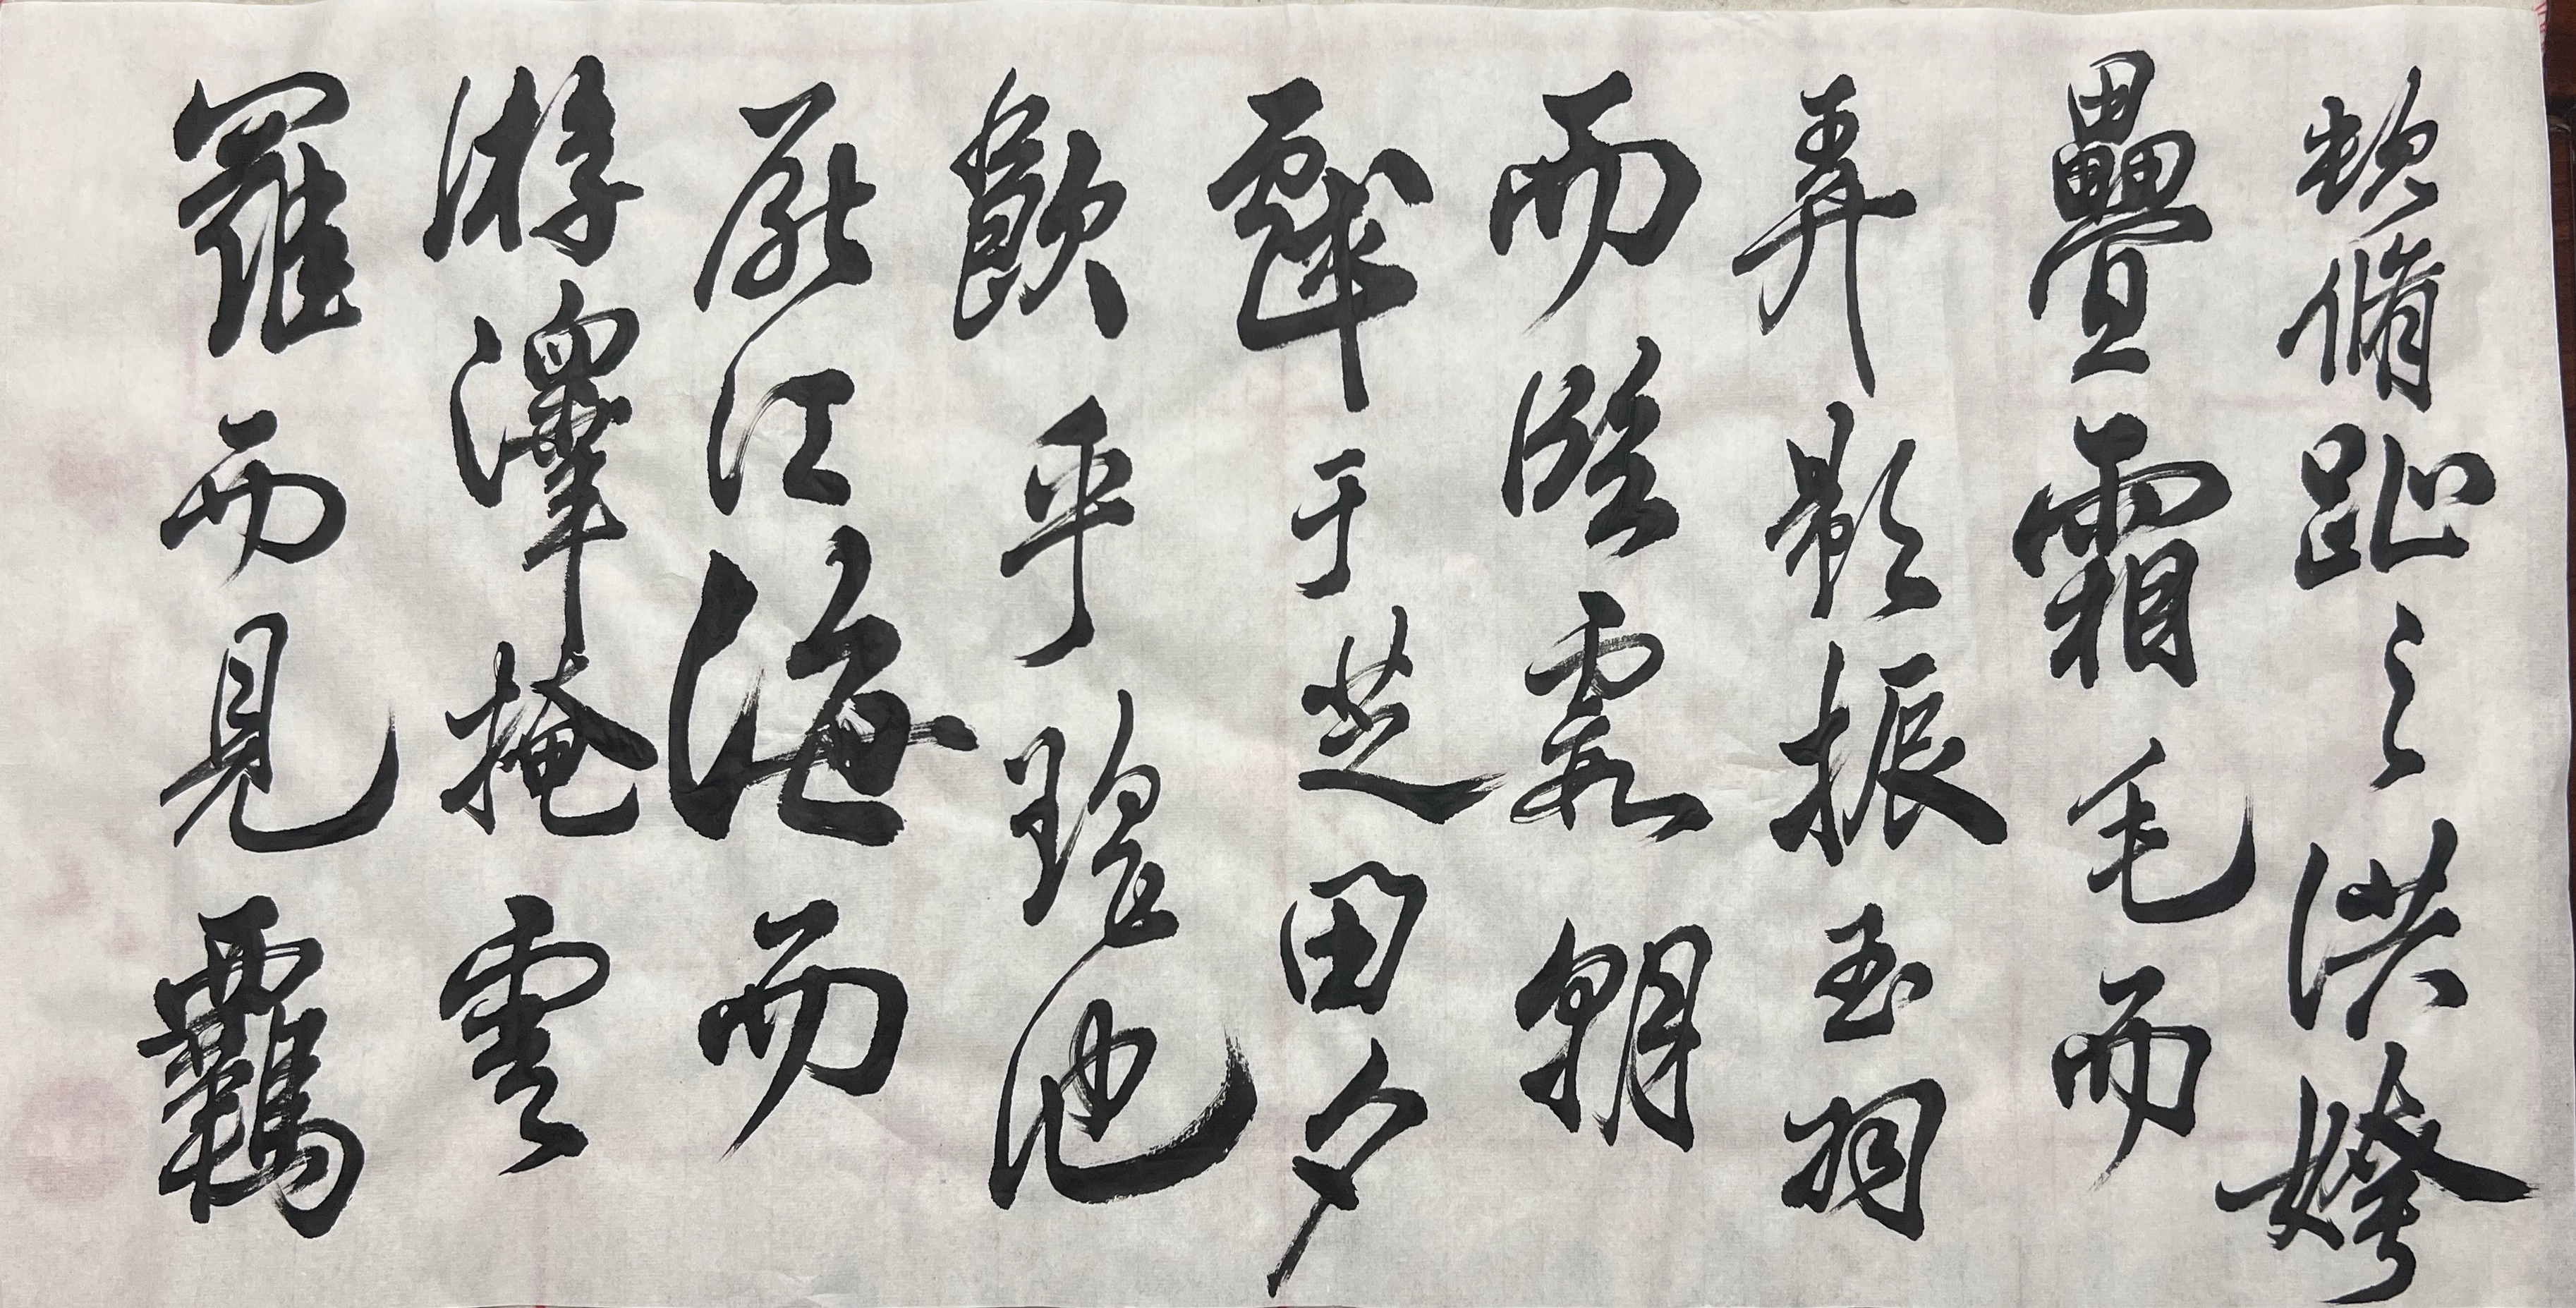 頓脩趾之洪姱
疊霜毛而
弄影振玉羽
而臨霞朝
戲于芝田夕
飲乎瑤池
厭江海而
游澤掩雲
羅而見羈